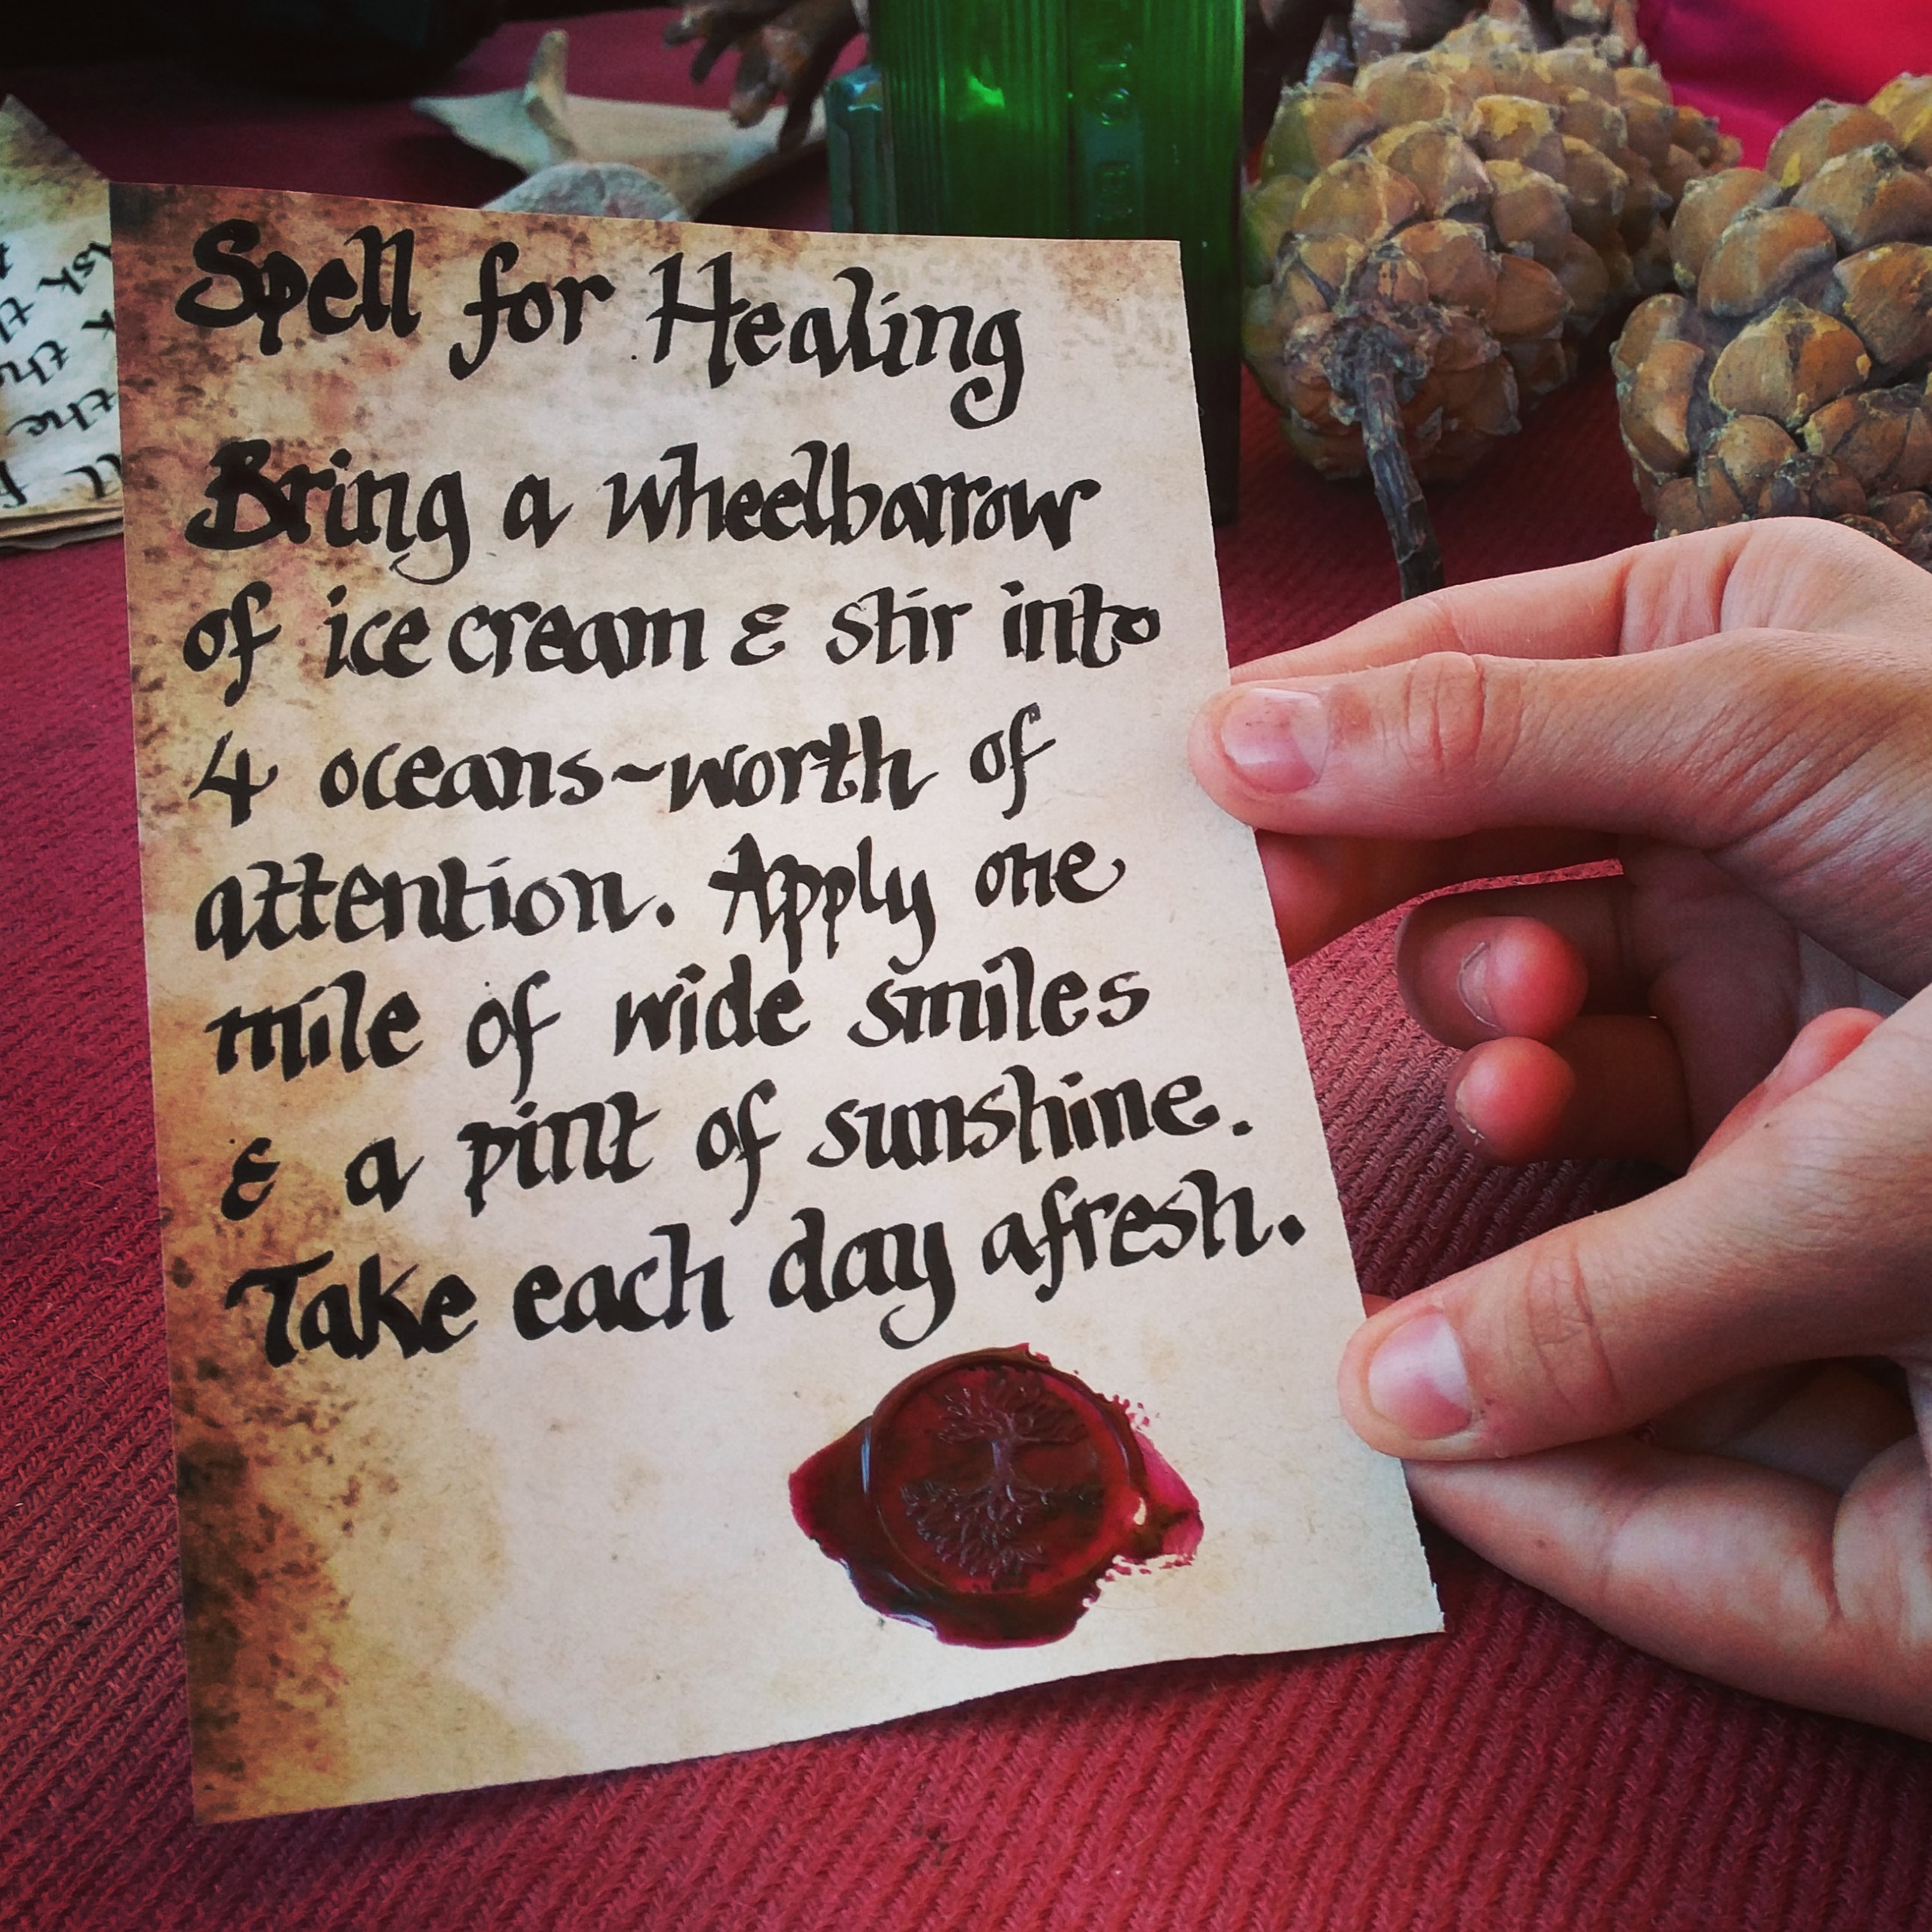 Spell for Healing
Bring a wheelbarrow
of ice cream & stir into
4 oceans~worth of
attention. Apply one
mile of wide smiles
& a pint of sunshine.
Take each day afresh.